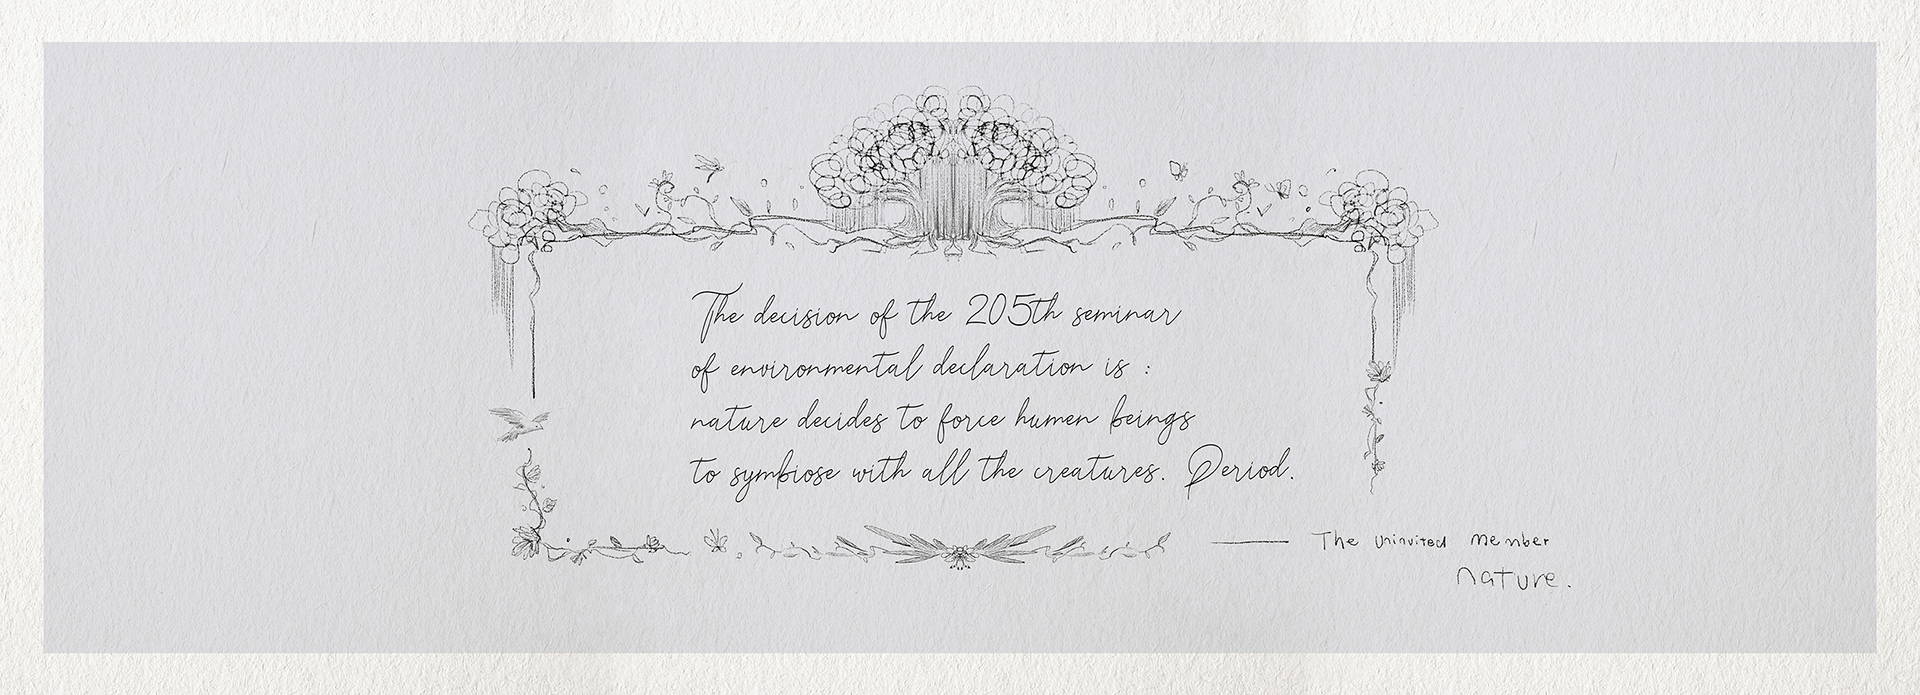 The decision of the 205th seminar
of environmental declaration is :
nature decides to force humen beings
to symbiose with all the creatures. Period.
—— The uninvited member
nature.